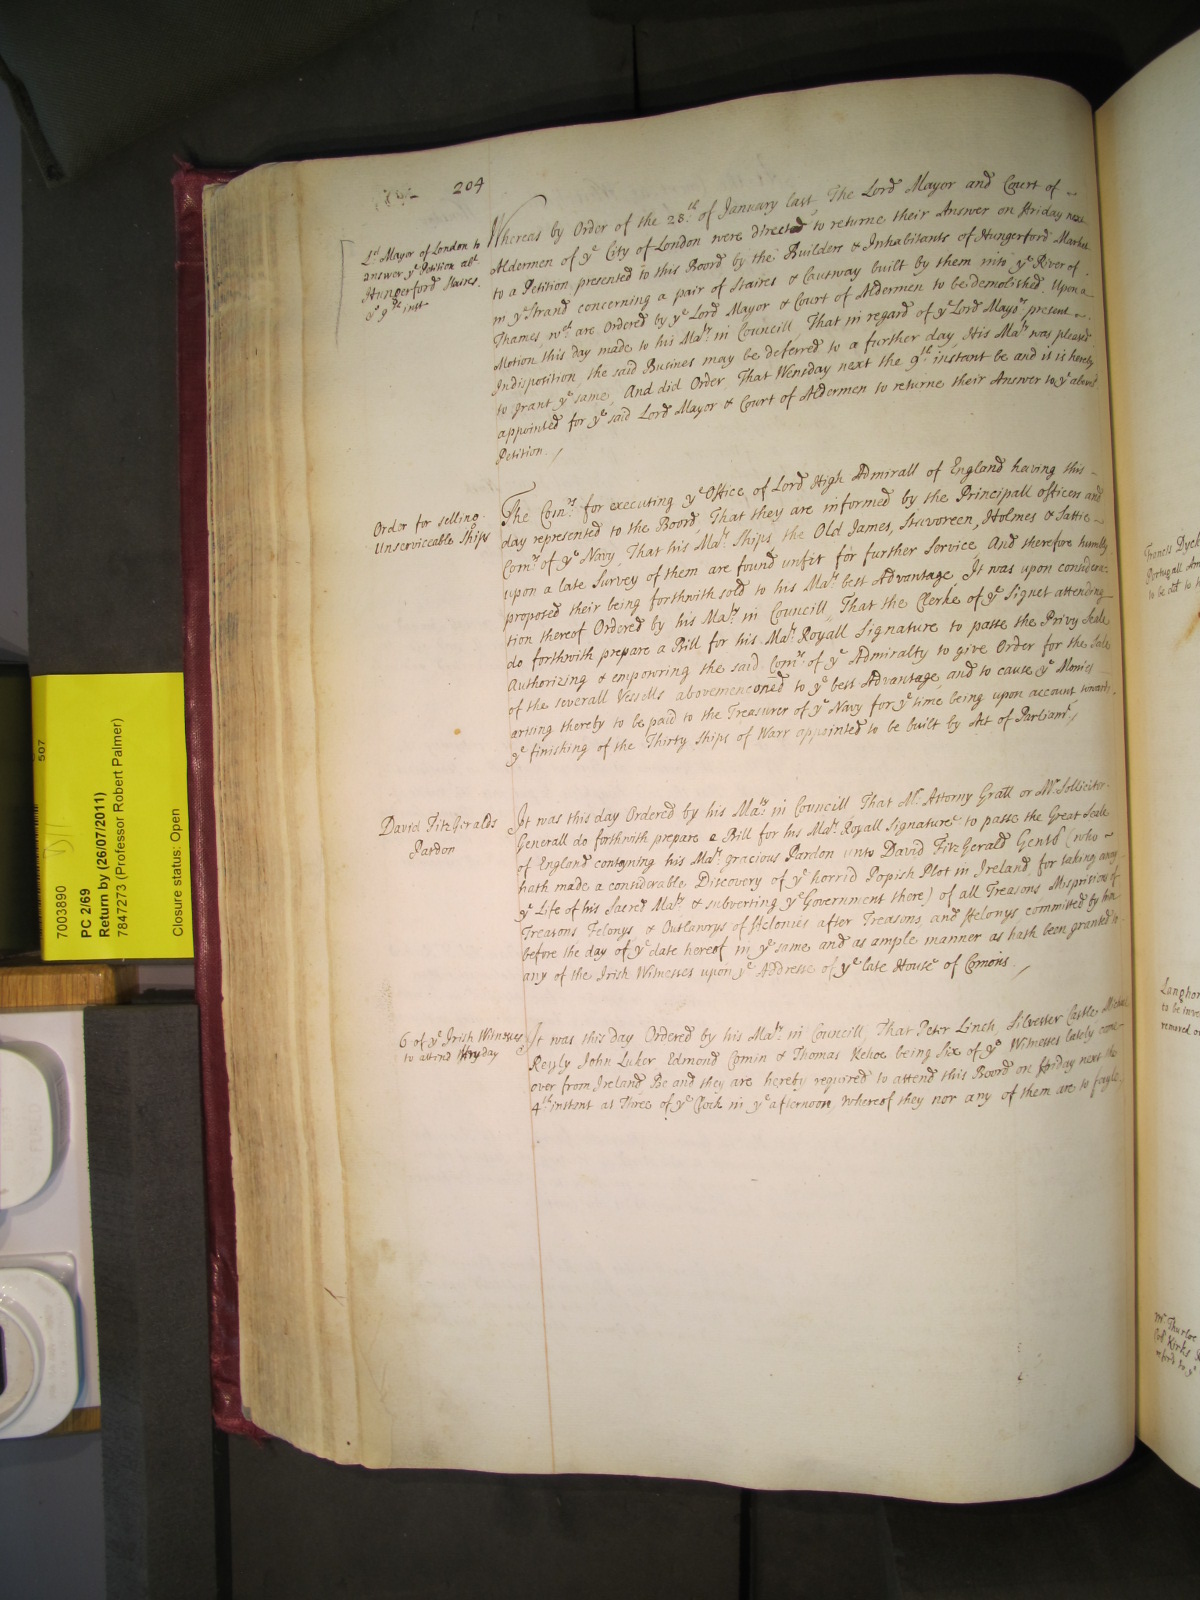 204
Ld Mayor of London to
answer ye Petition abt
Hungerford Staires.
ye 9th inst
Whereas by Order of the 28th of January last, The Lord Mayor and Court of
Aldermen of ye City of London were directed to returne their Answer on Friday next
to a Petition presented to this Board by the Builders & Inhabitants of Hungerford Market
in ye Strand concerning a pair of Staires & Causway built by them into ye River of
Thames, wch are Ordered by ye Lord Mayor & Court of Aldermen to be demolished. Upon a
Motion this day made to his Maty in Councill, That in regard of ye Lord Mayors present
Indisposition, the said Busines may be deferred to a further day, His Maty was pleased
to grant ye same, And did Order, That Wensday next the 9th instant be and it is hereby
appointed for ye said Lord Mayor & Court of Aldermen to returne their Answer to ye abovesd
Petition.
Order for selling
Unserviceable Ships
The Comrs for executing ye Office of Lord High Admirall of England having this
day represented to the Board, That they are informed by the Principall officers and
Comrs of ye Navy, That his Mats Ships the Old James, Stavoreen, Holmes & Sattie
upon a late Survey of them are found unfit for further Service, And therefore humbly
proposed their being forthwith sold to his Mats best Advantage, It was upon considera-
tion thereof Ordered by his Maty in Councill, That the Clerke of ye Signet attending
do forthwith prepare a Bill for his Mats Royall Signature to passe the Privy Seale
Authorizing & empowring the said Comrs of ye Admiralty to give Order for the Sale
of the severall Vessells abovemenconed to ye best Advantage, and to cause ye Monies
arising thereby to be paid to the Treasurer of ye Navy for ye time being upon account towards
ye finishing of the Thirty Ships of Warr appointed to be built by Act of Parliamt
David FitzGeralds
Pardon
It was this day Ordered by his Maty in Councill That Mr Attorny Grall or Mr Sollicitor
Generall do forthwith prepare a Bill for his Mats Royall Signature to passe the Great Seale
of England conteyning his Mats gracious Pardon unto David FitzGerald Gentl (who
hath made a considerable Discovery of ye horrid Popish Plot in Ireland, for taking away
ye Life of his Sacred Maty & subverting ye Government there) of all Treasons Misprisions of
Treasons Felonys & Outlawrys of Felonies after Treasons and Felonys committed by him
before the day of ye date hereof in ye same and as ample manner as hath been granted to
any of the Irish Witnesses upon ye Addresse of ye late House of Comons.
6 of ye Irish Witnesses
to attend Fryday
It was this day Ordered by his Maty in Councill, That Peter Linch, Silvester Castle, Michael
Reyly John Luker Edmond Comin & Thomas Kehoe being Six of ye Witnesses lately come
over from Ireland Be and they are hereby required to attend this Board on Friday next the
4th instant at Three of ye Clock in ye afternoon, Whereof they nor any of them are to fayle.
507
7003890
PC 2/69
Return by (26/07/2011)
7847273 (Professor Robert Palmer)
Closure status: Open
Francis Dyck
Portugall Am
to be
Langhor
to be
Mr Thurloe
Col Kirks